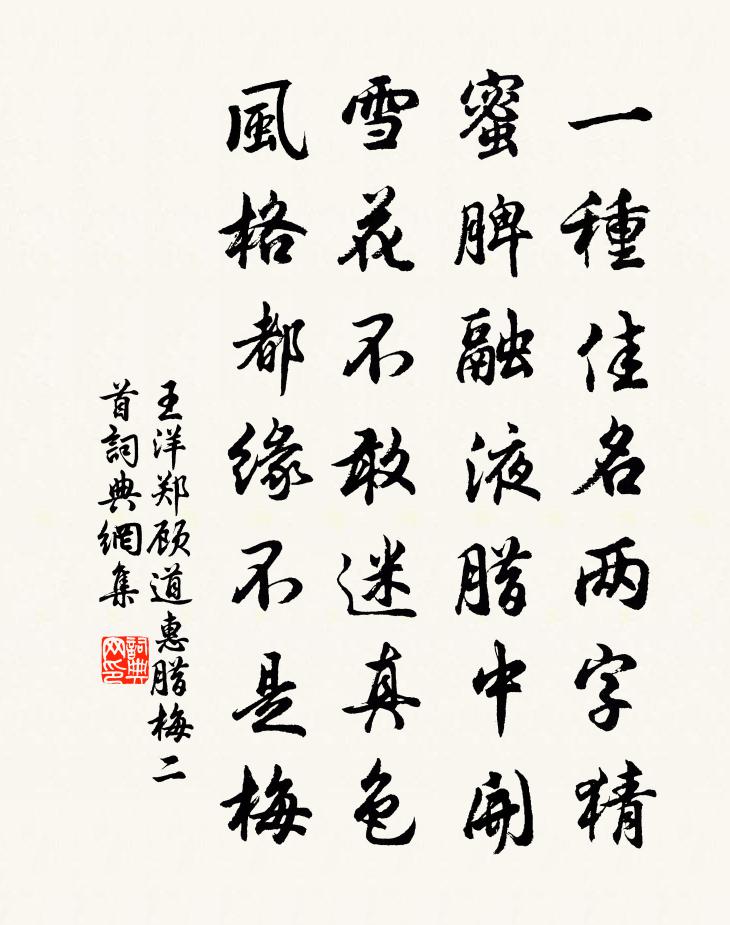 一種佳名两字猜
蜜脾融液腊中開
雪花不敢迷真色
風格都緣不是梅
王洋郑顾道惠腊梅二
首詞典網集
詞典网印